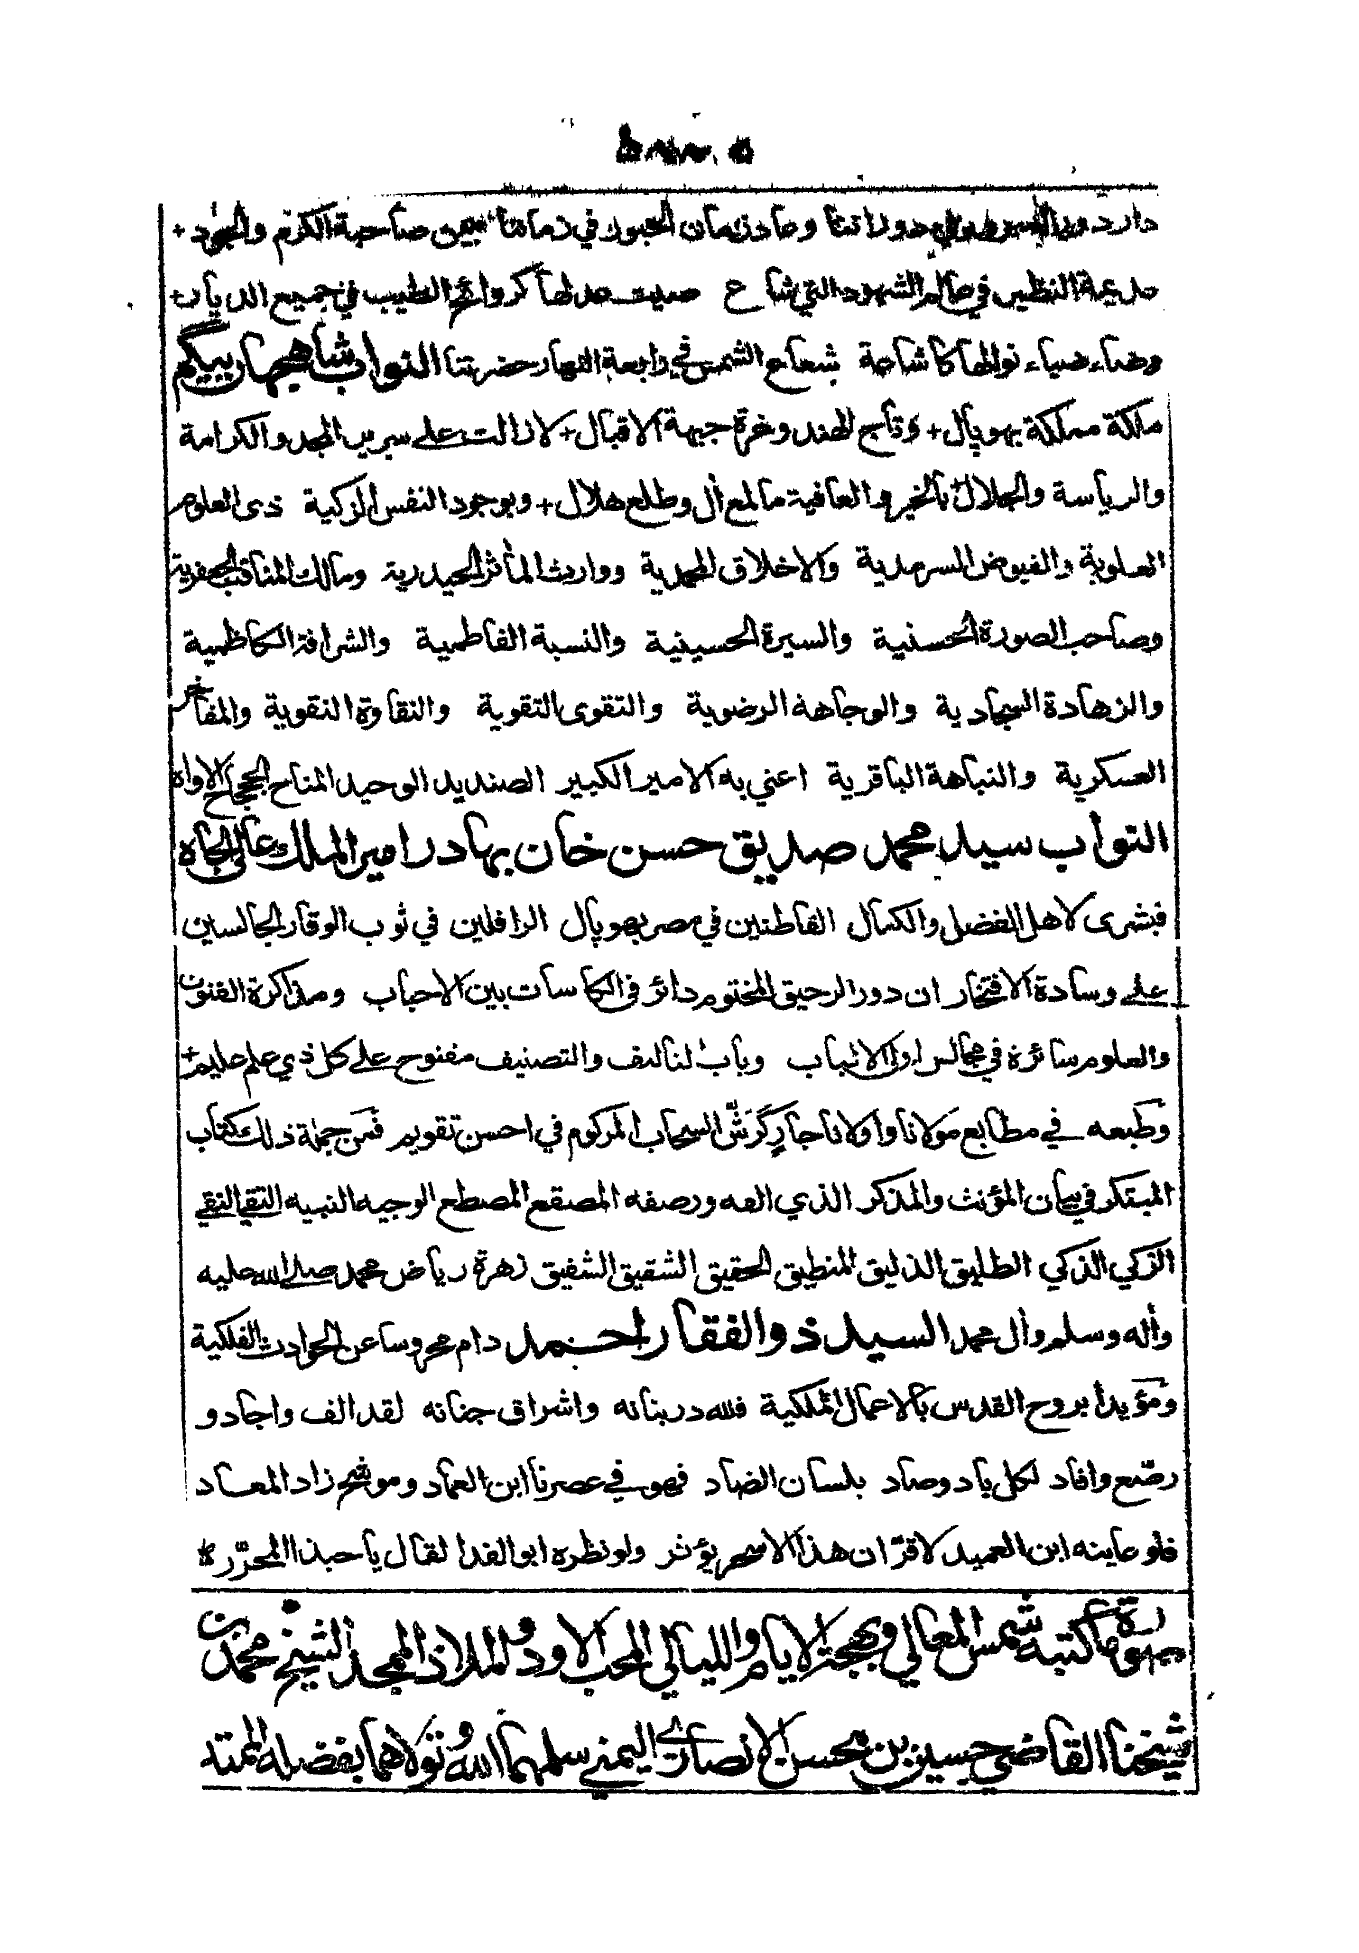 دار دور السرور في دوراننا وعاد زمان الحبور في زماننا بيمن صاحبة الكرم والجود +
عديمة النظير في عالم الشهود التي شاع صيت عدلها كروائح الطيب في جميع الديار +
وضاء ضياء نوالها كاشاعة شعاع الشمس في رابعة النهار حضرتنا النواب شاهجهان بيگم
ملكة مملكة بهوپال + وتاج الهند وغرة جبهة الاقبال + لا زالت على سرير المجد والكرامة
والرياسة والجلال + بالخير والعافية ما لمع أل وطلع هلال + وبوجود النفس الزكية ذى العلوم
العلوية والفيوض السرمدية والاخلاق المحمدية ووارث المأثر الحيدرية ومالك المناقب الجعفرية
وصاحب الصورة الحسنية والسيرة الحسينية والنسبة الفاطمية والشرافة الكاظمية
والزهادة السجادية والوجاهة الرضوية والتقوى التقوية والنقاوة النقوية والمفاخر
العسكرية والنباهة الباقرية اعني به الامير الكبير الصنديد الوحيد المناح الجحجاح الاواه
النواب سيد محمد صديق حسن خان بهادر امير الملك عالى الجاه
فبشرى لاهل الفضل والكمال القاطنين في مصر بهوپال الرافلين في ثوب الوقار الجالسين
على وسادة الافتخار ان دور الرحيق المختوم دائر في الكاسات بين الاحباب ومذاكرة الفنون
والعلوم سائرة في مجالس اولى الالباب وباب التاليف والتصنيف مفتوح على كل ذي علم عليم +
وطبعه في مطابع مولانا واولانا جار كرش السحاب المركوم في احسن تقويم فمن جملة ذلك كتاب
المبتكر في بيان المؤنث والمذكر الذي الفه ورصفه المصقع المصطع الوجيه النبيه التقي النقي
الزكي الذكي الطليق الذليق المنطيق الحقيق الشقيق الشفيق زهرة رياض محمد صلى الله عليه
وأله وسلم وال محمد السيد ذو الفقار احمد دام محروسا عن الحوادث الفلكية
ومؤيدا بروح القدس بالاعمال الملكية فلله در بنانه واشراق جنانه لقد الف واجاد و
رصّع وافاد لكل باد وصاد بلسان الضاد فهو في عصرنا ابن العماد وموشح زاد المعاد
فلو عاينه ابن العميد لاقرّ ان هذا الاسحر يؤثر ولو نظره ابو الفدا لقال يا حبذا المحرّر *
صورة ما كتبه شمس المعالي وبهجة الايام والليالي المحب الاود والملاذ الممجد الشيخ محمد بن
شيخنا القاضي حسين بن محسن الانصاري اليمني سلمهما الله وتولاهما بفضله الممته